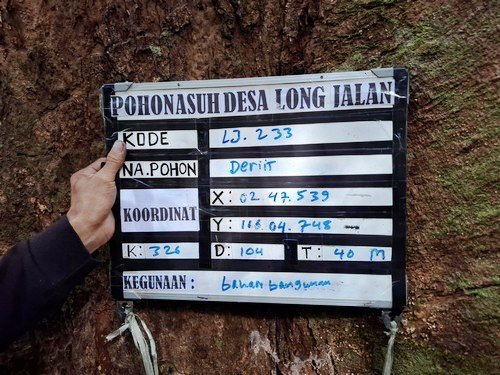 POHONASUH DESA LONG JALAN
KODE LJ. 233
NA.POHON Deriit
KOORDINAT X: 02.47.539
Y: 116.04.748
K: 326 D: 104 T: 40 M
KEGUNAAN : bahan bangunan